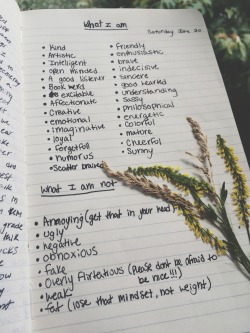 What I am
Saturday June 20
• Kind
• Artistic
• Intelligent
• open minded
• A good listener
• Book nerd
• excitable
• Affectionate
• Creative
• emotional
• imaginative
• loyal
• Forgetfull
• humorus
• Scatter brained
• Friendly
• enthusiastic
• brave
• indecisive
• sincere
• good hearted
• understanding
• Sassy
• philosophical
• energetic
• colorful
• mature
• Cheerful
• Sunny
What I am not
• Annoying (get that in your head)
• ugly
• negative
• obnoxious
• Fake
• Overly Flirtatious (Please don't be afraid to
be nice!!!)
• weak
• fat (lose that mindset, not weight)